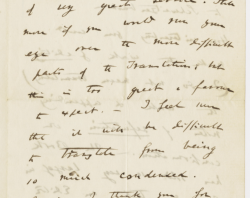 of very great service. Still
more if you would run your
eye over the more difficult
parts of the Translation; but
this is too great a favour
to expect. — I feel sure
that it will be difficult
to translate from being
so much condensed.
I thank you for